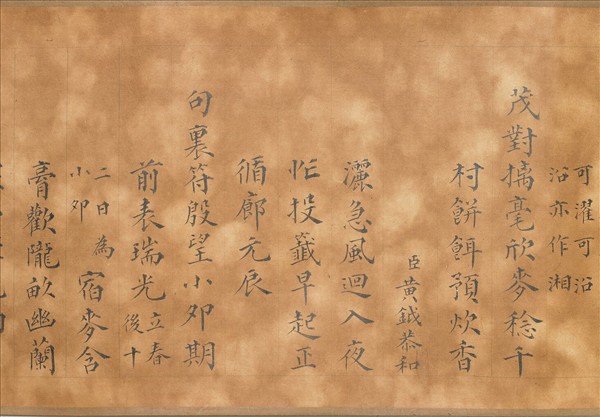 可濯可沿
沿亦作湘
茂對摛毫欣麥稔千
村餅餌預炊香
臣黃鉞恭和
灑急風迴入夜
忙投籤早起正
循廊元辰
句裏符殷望小卯期
前表瑞光立春後十
二日為小卯宿麥含
膏歡隴畝幽蘭